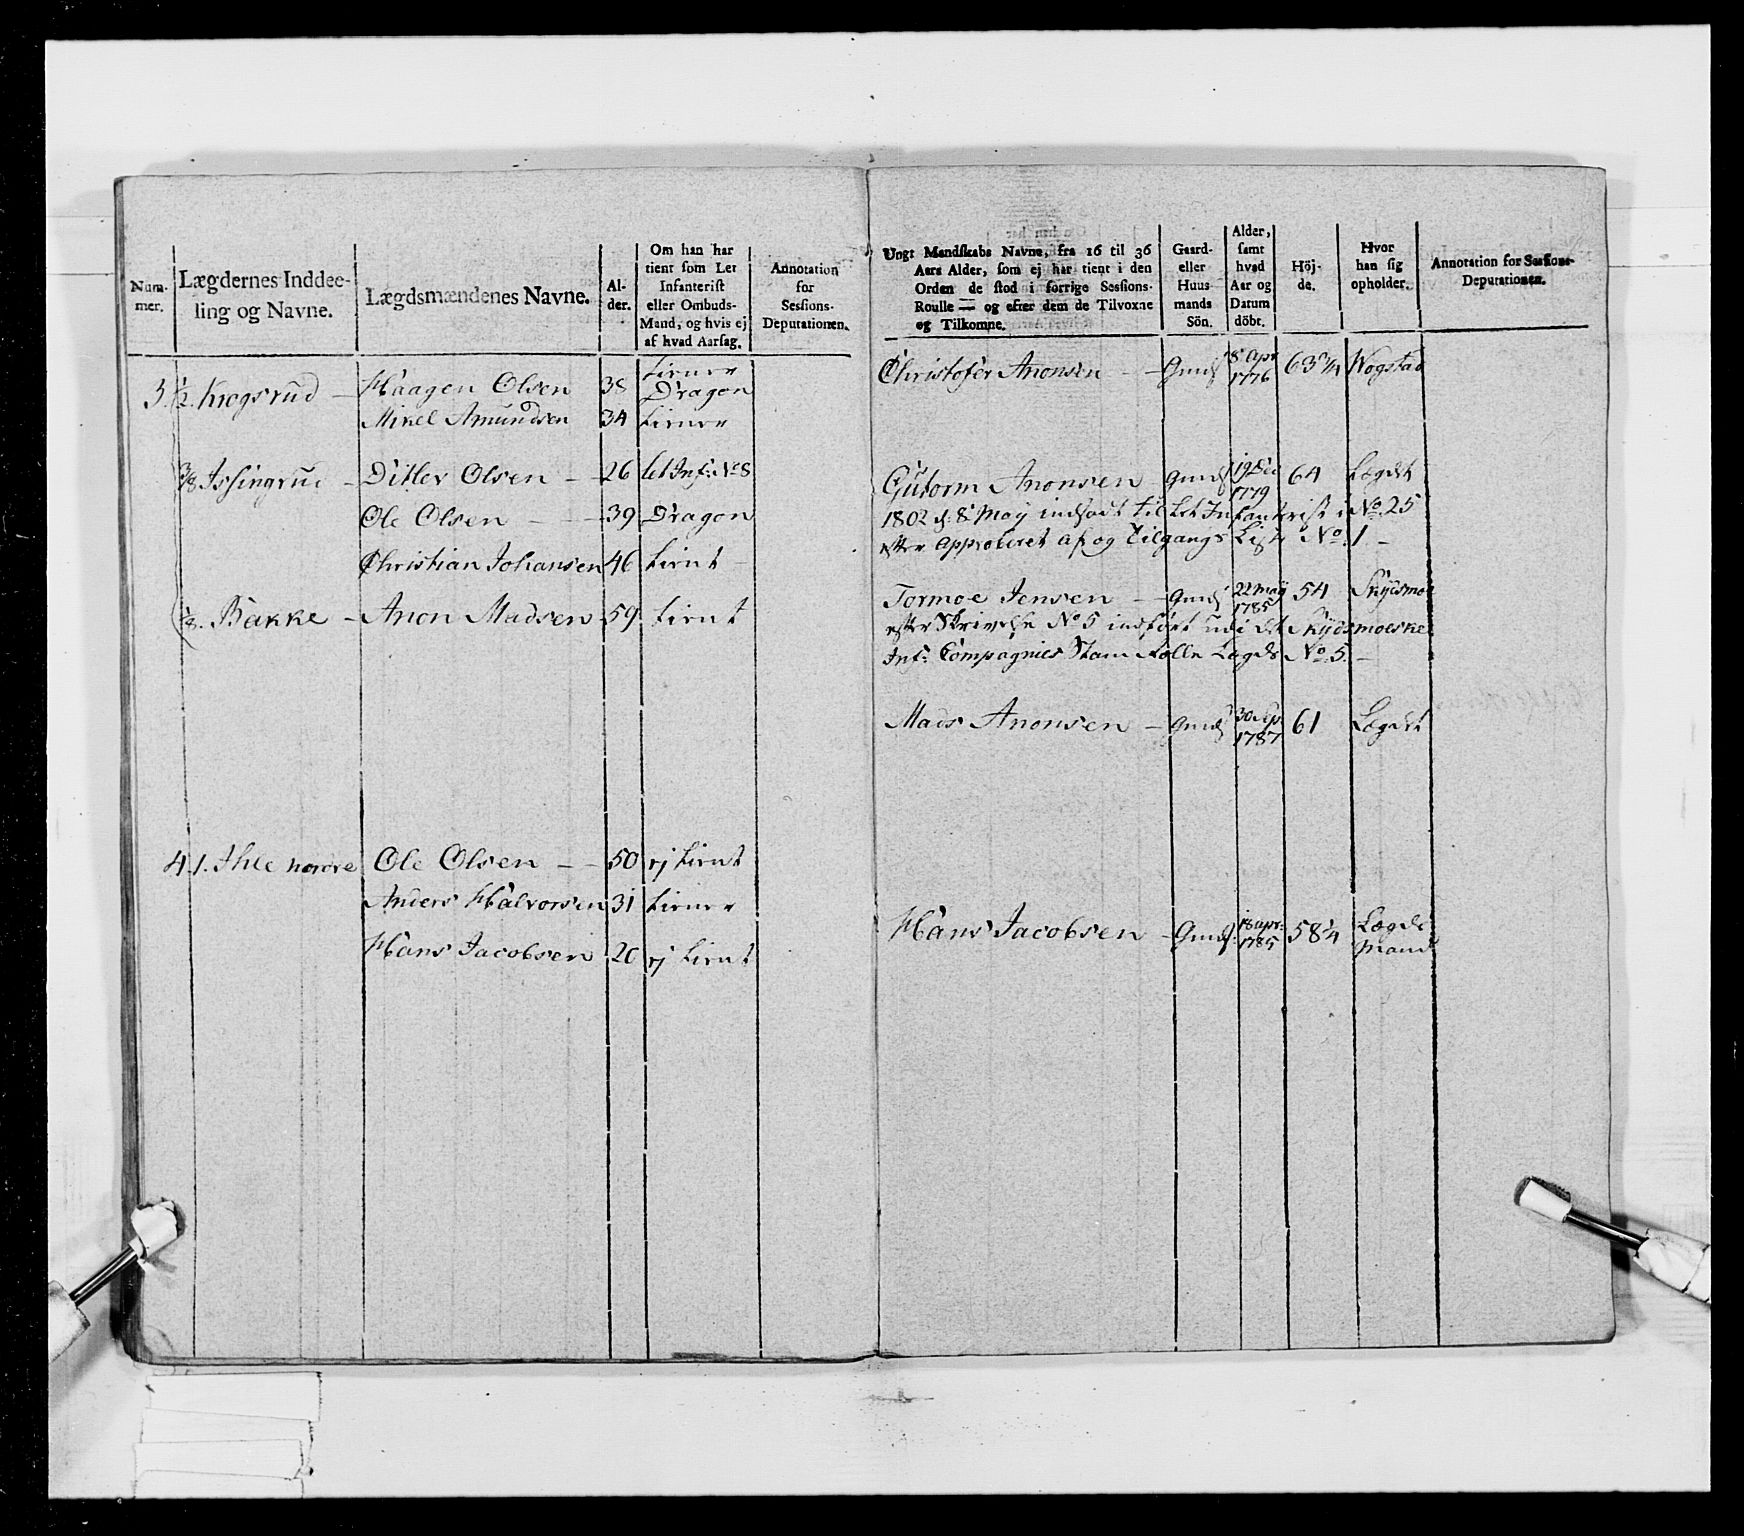 Num-
mer.
Lægdernes Inddee-
ling og Navne.
Lægdsmændenes Navne.
Al-
der.
Om han har
tient som Let
Infanterist
eller Ombuds-
Mand, og hvis ej
af hvad Aarsag.
Annotation
for
Sessions-
Deputationen.
3. ½. Krogsrud - Haagen Olsen 38 Dragon
Mikel Amundsen 34
3/8 Issingrud - Ditlev Olsen - 26 let Inf: No 8
Ole Olsen - 39 Dragon
Christian Johansen 46 tient -
1/8. Bakke - Anon Madsen 59. tient
4. 1. Ihle nordre Ole Olsen - - 50 ej tient
Anders Halvorsen 31
Hans Jacobsen 20 ej tient
Ungt Mandskabs Navne, fra 16 til 36
Aars Alder, som ej har tient i den
Orden de stod i forrige Sessions-
Roulle — og efter dem de Tilvoxne
og Tilkomne.
Gaard-
eller
Huus-
mands
Sön.
Alder,
samt
hvad
Aar og
Datum
döbt.
Höj-
de.
Hvor
han sig
opholder.
Annotation for Sessions-
Deputationen.
Christofer Anonsen - - Gmds 8 Apr 1776 63 ¾ Wogstad
Gutorm Anonsen - Gmds 19 Dec 1779 64 Lægdet
1802 d: 8 May indsadt til Let Infanterist i No. 25
efter Approberet af og Tilgangs Liste No. 1 -
Tormoe Jensen - Gmds 22 May 1785 54 Skydsmoe
efter Skrivelse No 5 indført udi det Skydsmoeske
Inf: Compagnies Stam Rolle Lægds No. 5. -
Mads Anonsen - Gmds 30 Ap 1787 61 Lægdet
Hans Jacobsen - Gmds: 18 Apr: 1785 58 ¼ Lægds
Mand